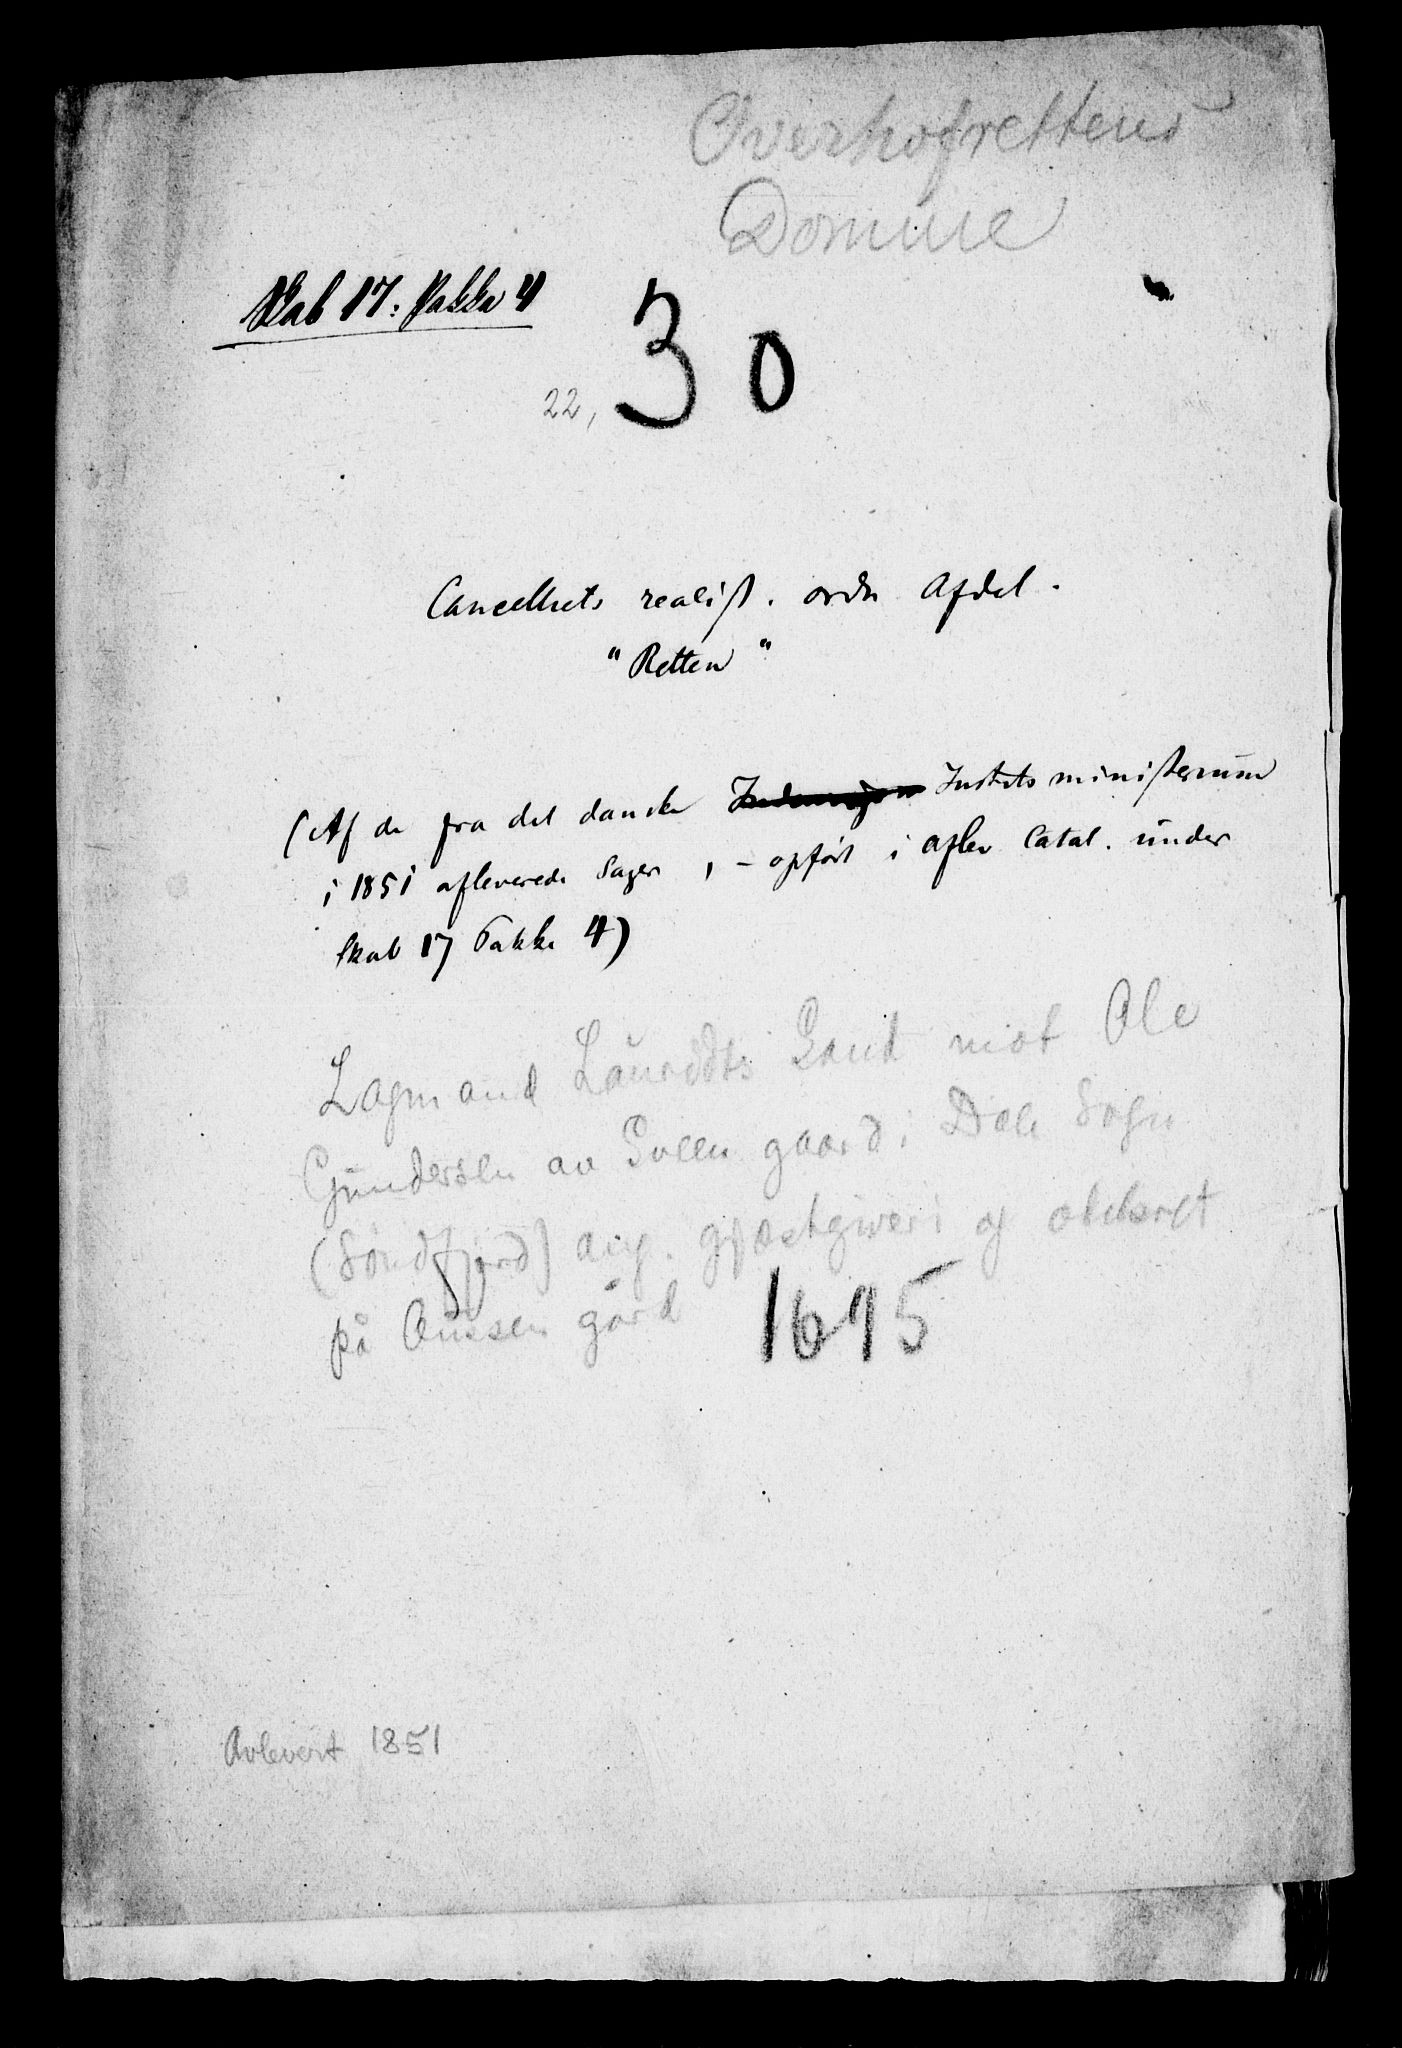 Overhofrettens
Domme
Skab 17: Pakke 4
22, 30
Cancelliets realist. ordn Afdel.
"Retten"
(Af de fra det danske Justitsministerium
i 1851 afleverede Sager, - opført i Aflev Catal. under
Skab 17 Pakke 4)
Lagmand Lauridts Gand mot Ole
Gundersen av gaard i Dale Sogn
(Søndfjord) ang. gjæstgiveri og
på gård 1695
Avlevert 1851